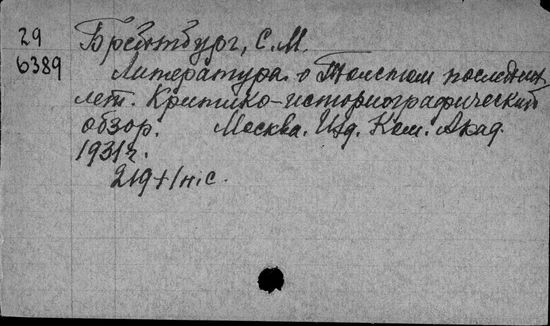 29
6389
Брейтбург, С.М.
Литература о Толстом последних
лет. Критико-историографический
обзор. Москва. Изд. Ком. Акад.
1931г.
219+1н.с.